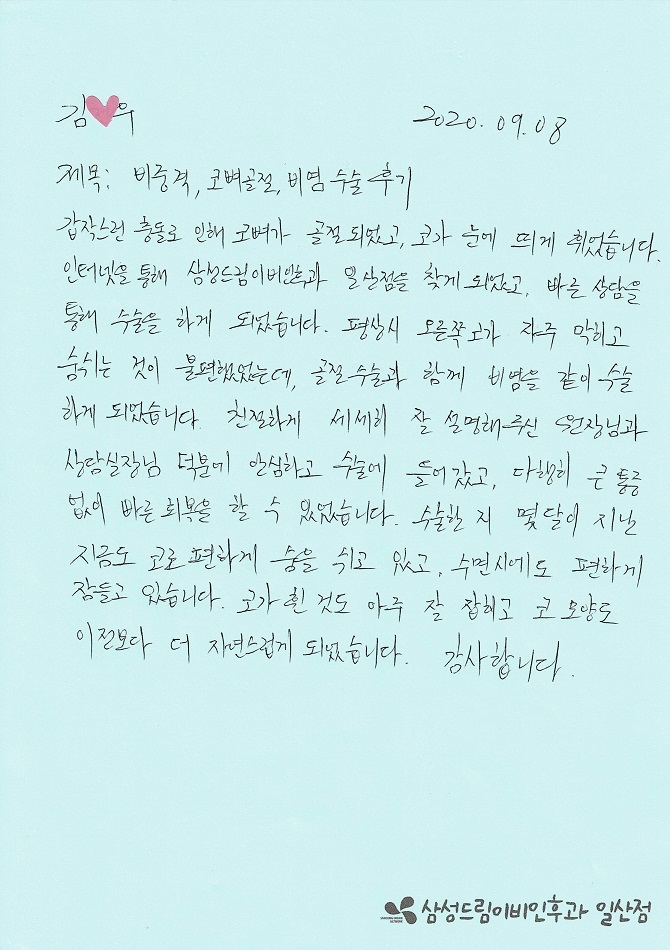 김♥우 2020. 09. 08
제목: 비중격, 코뼈골절, 비염 수술 후기
갑작스런 충돌로 인해 코뼈가 골절되었고, 코가 눈에 띄게 휘었습니다.
인터넷을 통해 삼성드림이비인후과 일산점을 찾게 되었고, 빠른 상담을
통해 수술을 하게 되었습니다. 평상시 오른쪽코가 자주 막히고
숨쉬는 것이 불편했었는데, 골절수술과 함께 비염을 같이 수술
하게 되었습니다. 친절하게 세세히 잘 설명해주신 원장님과
상담실장님 덕분에 안심하고 수술에 들어갔고, 다행히 큰 통증
없이 빠른 회복을 할 수 있었습니다. 수술한 지 몇 달이 지난
지금도 코로 편하게 숨을 쉬고 있고, 수면시에도 편하게
잠들고 있습니다. 코가 휜 것도 아주 잘 잡히고 코 모양도
이전보다 더 자연스럽게 되었습니다. 감사합니다.
삼성드림이비인후과 일산점